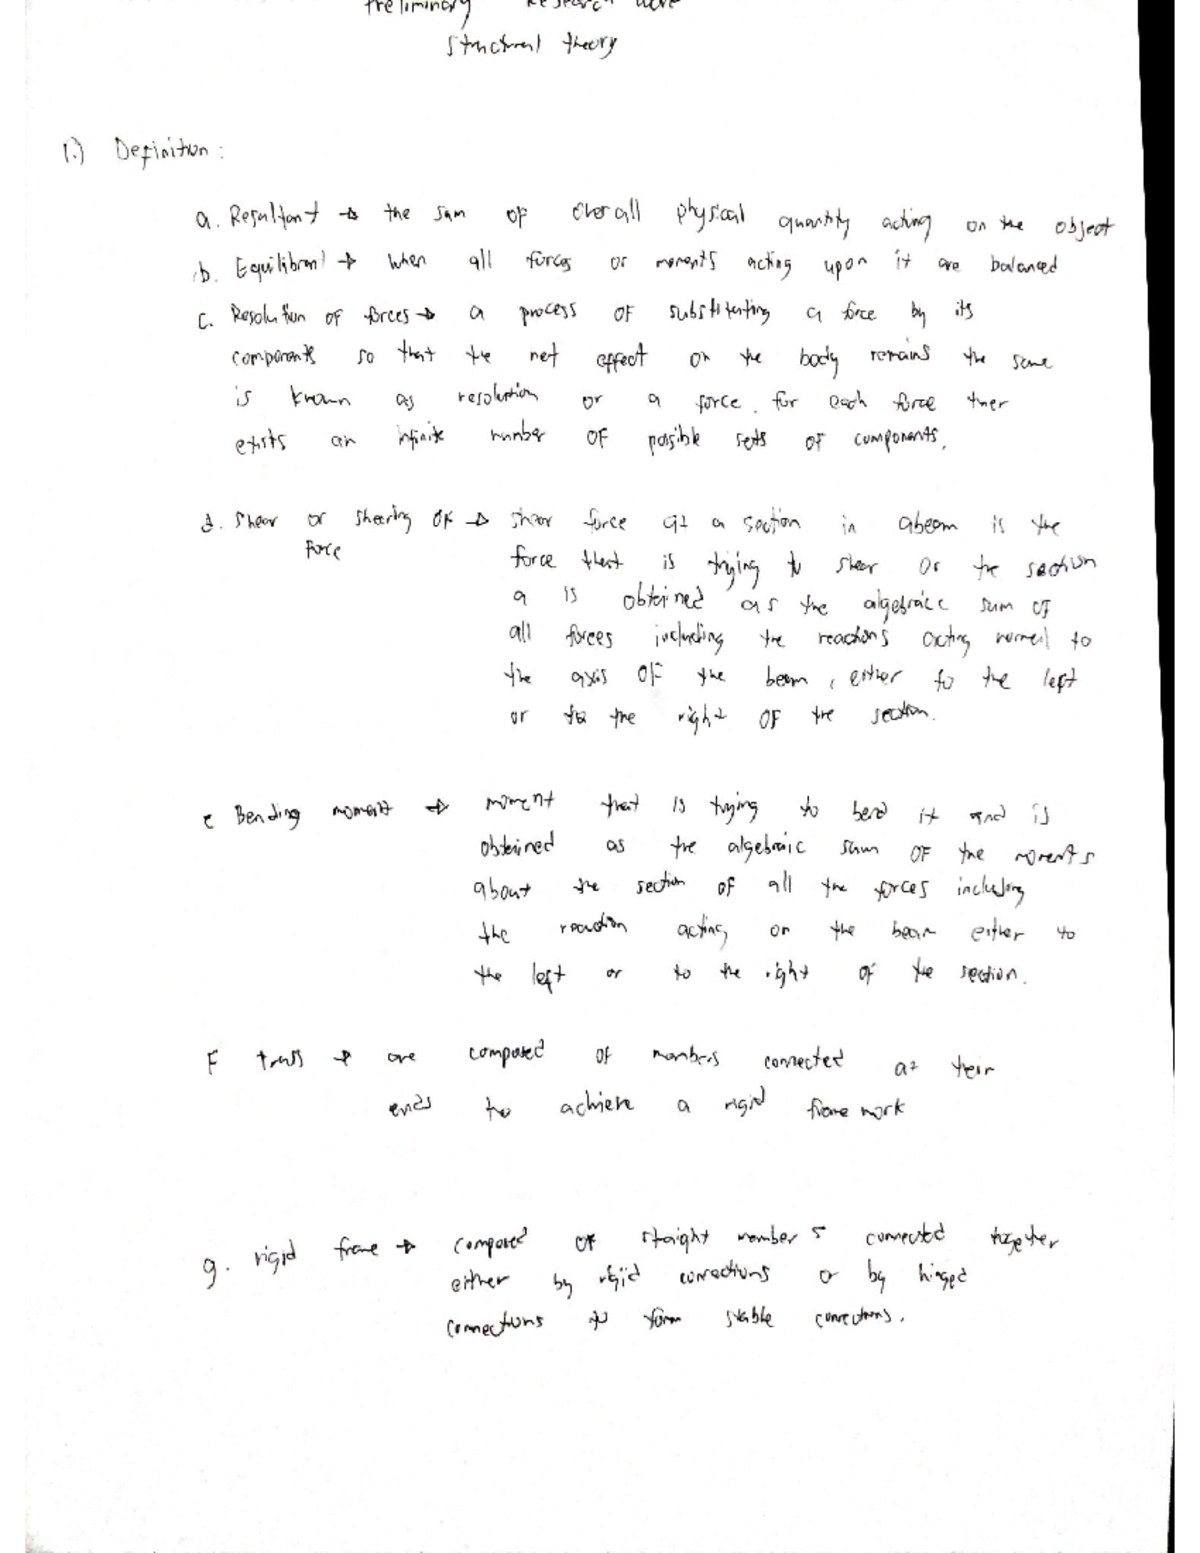 Preliminary Research
Structural theory
1.) Definition :
a. Resultant → the sum of overall physical quantity acting on the object
b. Equilibrant → when all forces or moments acting upon it are balanced
c. Resolution of forces → a process of substituting a force by its
components so that the net effect on the body remains the same
is known as resolution or a force. for each force ther
exists an infinite number of possible sets of components.
d. Shear or shearing OF → shear force at a section in a beam is the
force
force that is trying to shear or the section
a is obtained as the algebraic sum of
all forces including the reactions acting normal to
the axis of the beam, either to the left
or to the right of the section.
e Bending moment → moment that is trying to bend it and is
obtained as the algebraic sum of the moments
about the section of all the forces including
the reaction acting on the beam either to
the left or to the right of the section.
F truss → are composed of members connected at their
ends to achieve a rigid frame work
g. rigid frame → composed of straight members connected together
either by rigid connections or by hinged
connections to form stable connections.